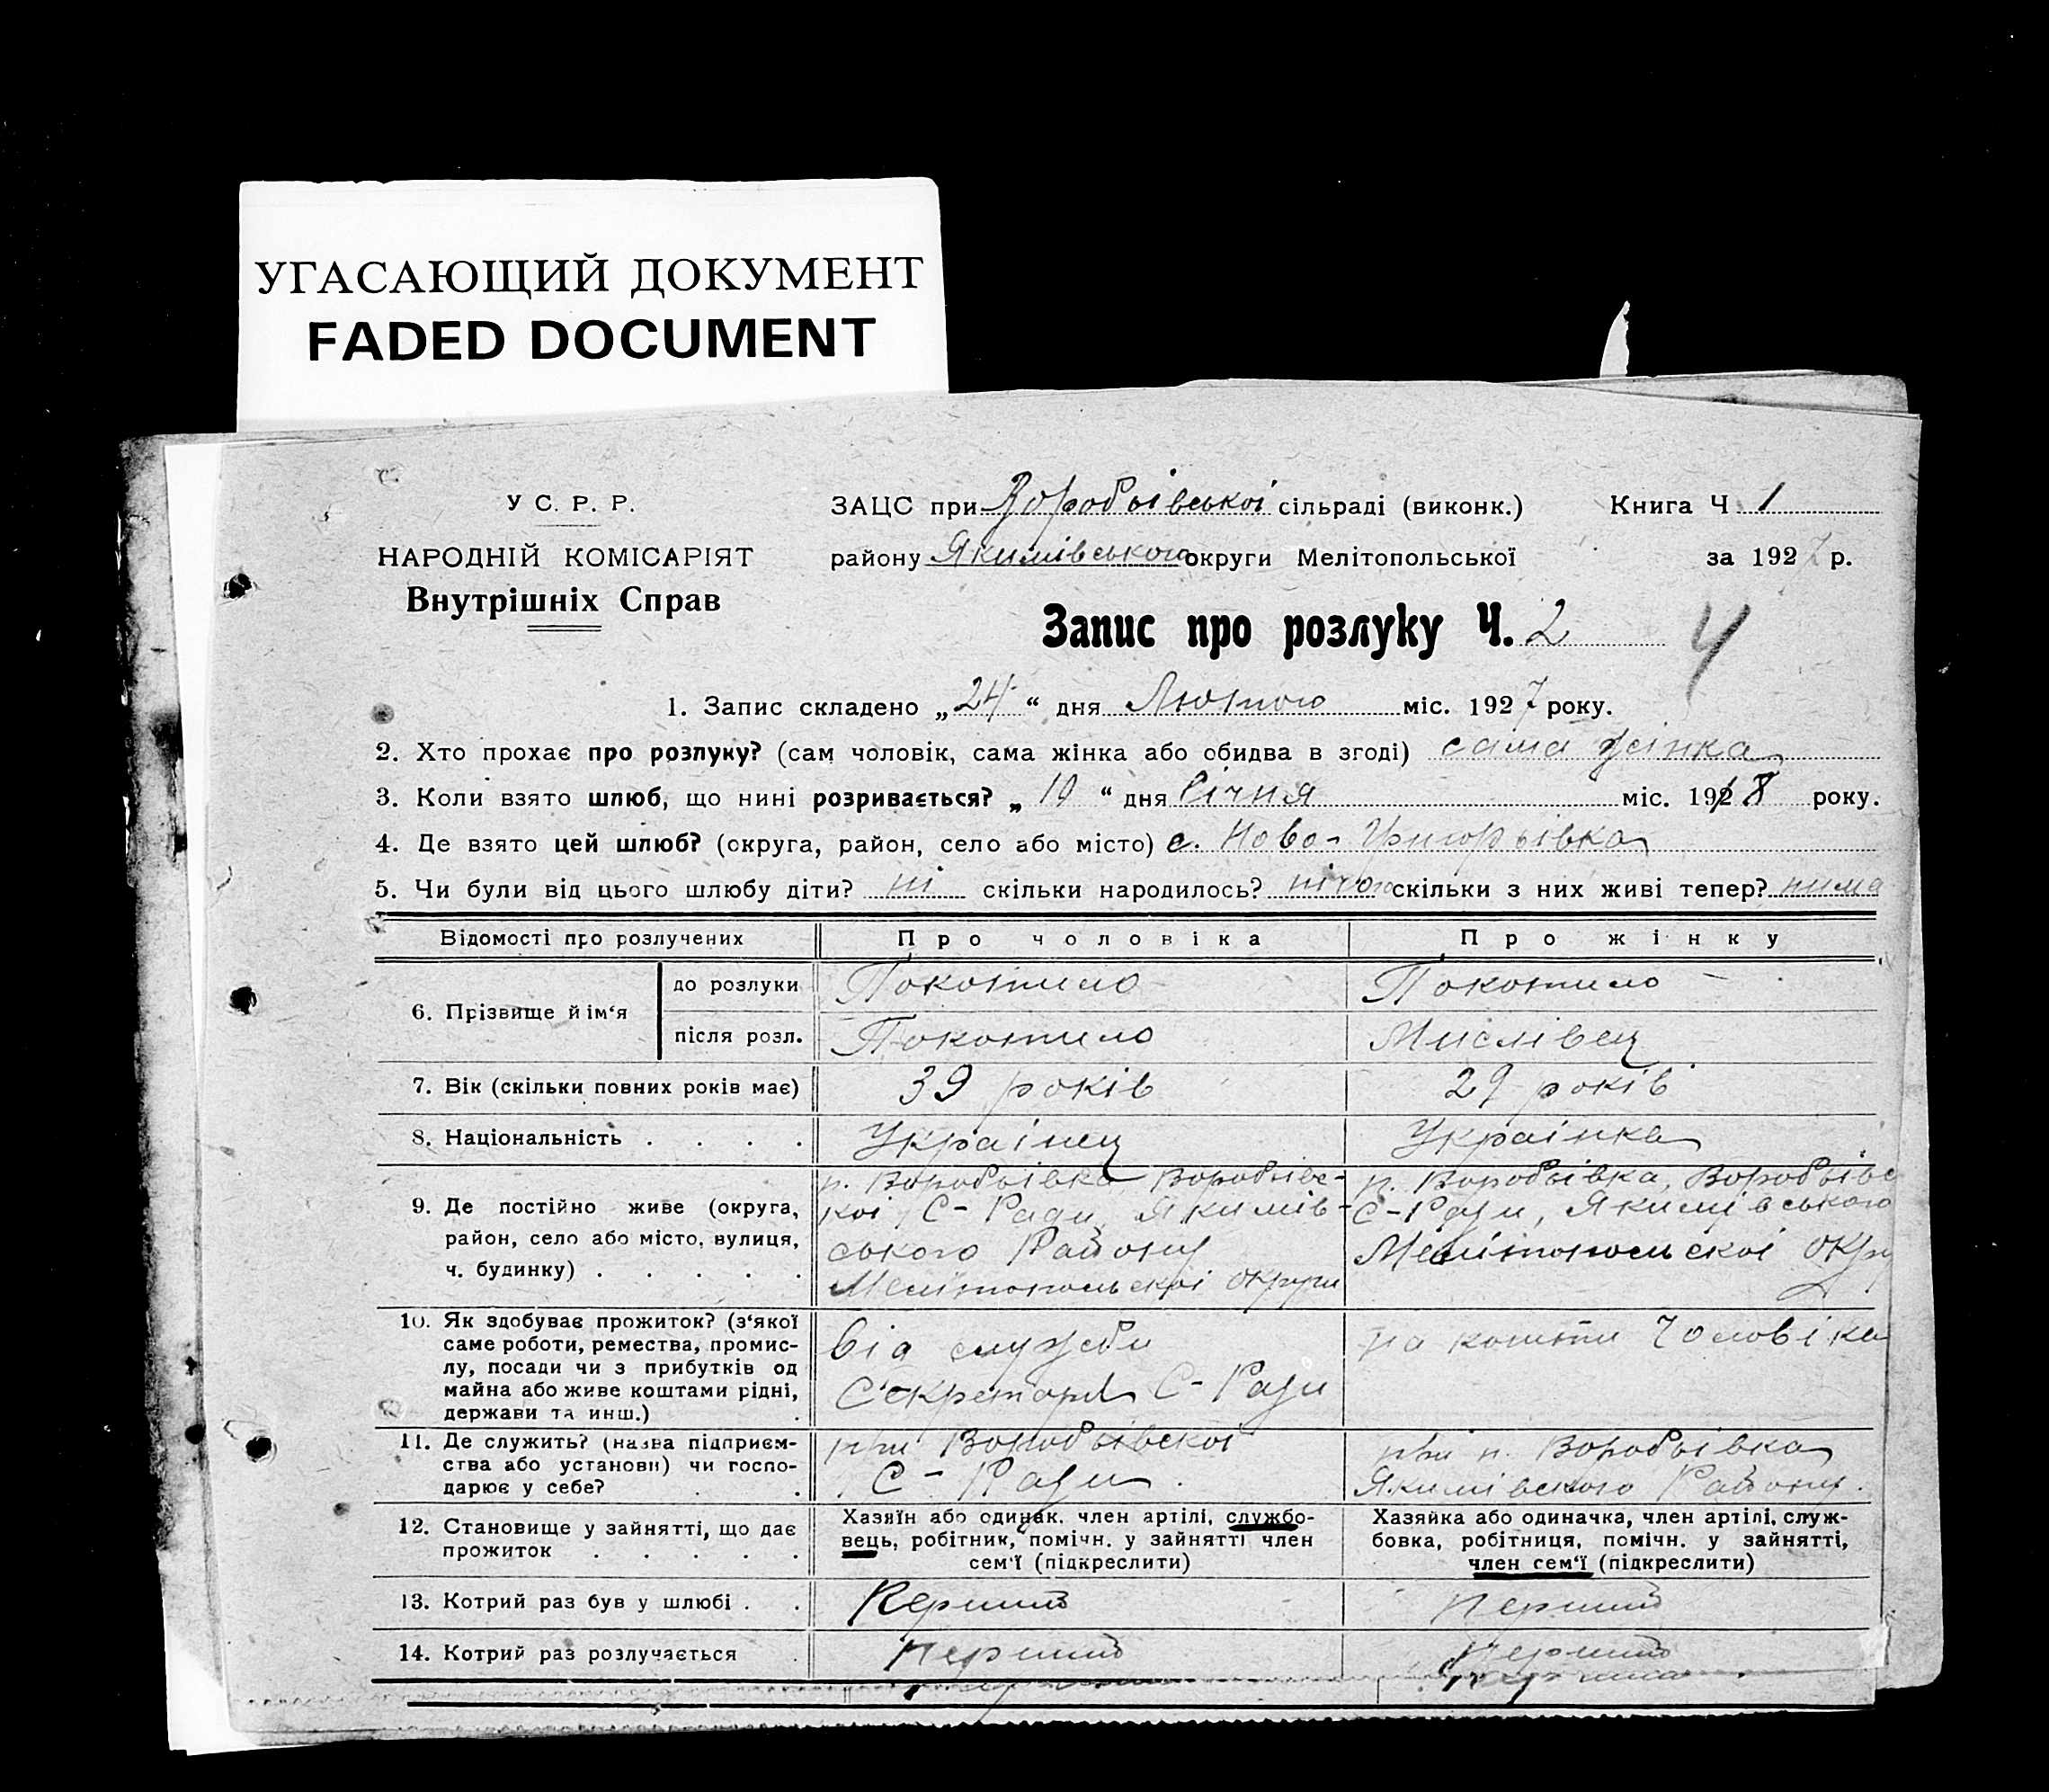 УГАСАЮЩИЙ ДОКУМЕНТ
FADED DOCUMENT
У С. Р. Р.
НАРОДНІЙ КОМІСАРІЯТ
Внутрішніх Справ
ЗАЦС при Воробьівської сільраді (виконк.)
Книга Ч 1
району Якимівського округи Мелітопольської
за 1927 р.
Запис про розлуку Ч. 2
4
1. Запис складено „24“ дня Лютого міс. 1927 року.
2. Хто прохає про розлуку? (сам чоловік, сама жінка або обидва в згоді) сама жінка
3. Коли взято шлюб, що нині розривається? „10“ дня Січня міс. 1918 року.
4. Де взято цей шлюб? (округа, район, село або місто) с. Ново-Григорьівка
5. Чи були від цього шлюбу діти? ні скільки народилось? нічого скільки з них живі тепер? нима
Відомості про розлучених
Про чоловіка
Про жінку
6. Прізвище й ім‘я
до розлуки
Покотило
Покотило
після розл.
Покотило
Мислівец
7. Вік (скільки повних років має)
39 років
29 років
8. Національність . . . .
Украінец
Украінка
9. Де постійно живе (округа,
район, село або місто, вулиця,
ч. будинку) . . . . .
п. Воробьівка Воробьівс-
коі С-Ради, Якимів-
ського Району
Мелітопольскоі округи
п. Воробьівка, Воробьівс
С-Ради, Якимівського
Мелітопольскоі Окру
10. Як здобуває прожиток? (з‘якої
саме роботи, ремества, промис-
лу, посади чи з прибутків од
майна або живе коштами рідні,
держави та инш.) .
від служби
Секретарь С-Ради
на кошти Чоловіка
11. Де служить? (назва підприєм-
ства або установи) чи госпо-
дарює у себе? . .
при Воробьівскоі
С-Ради.
при п. Воробьівка
Якимівского Району.
12. Становище у зайнятті, що дає
прожиток . . . . .
Хазяїн або одинак. член артілі, службо-
вець, робітник, помічн. у зайнятті член
сем‘ї (підкреслити)
Хазяйка або одиначка, член артілі, служ-
бовка, робітниця, помічн. у зайнятті,
член сем‘ї (підкреслити)
13. Котрий раз був у шлюбі . .
Перший
перший
14. Котрий раз розлучається .
перший
перший